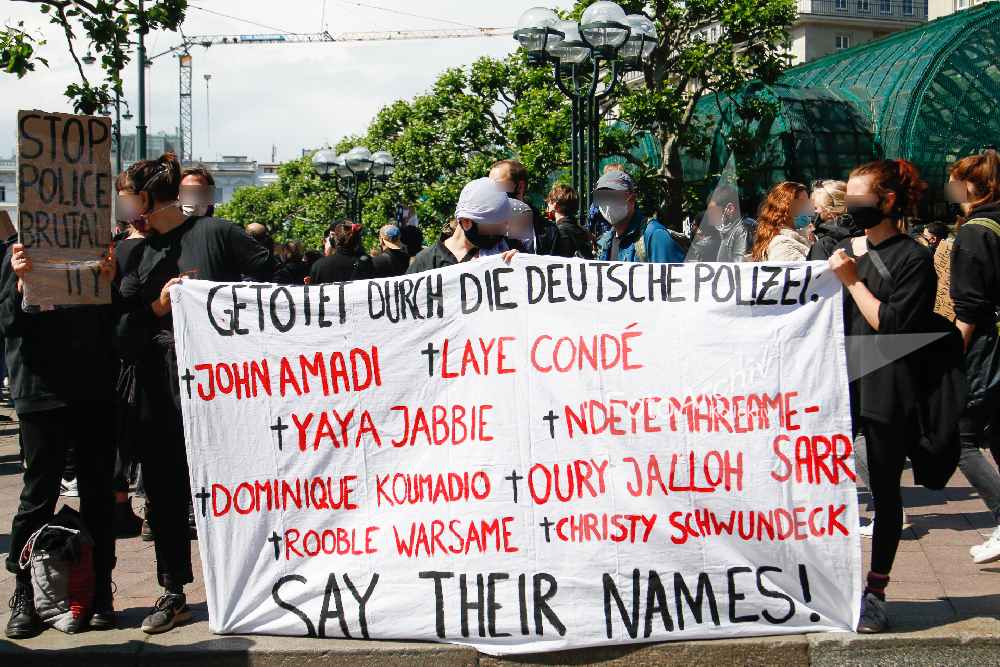 STOP
POLICE
BRUTALI
TY
GETÖTET DURCH DIE DEUTSCHE POLIZEI:
†JOHN AMADI †LAYE CONDÉ
†YAYA JABBIE †N'DEYE MAREAME-
SARR
†DOMINIQUE KOUMADIO †OURY JALLOH
†ROOBLE WARSAME †CHRISTY SCHWUNDECK
SAY THEIR NAMES!